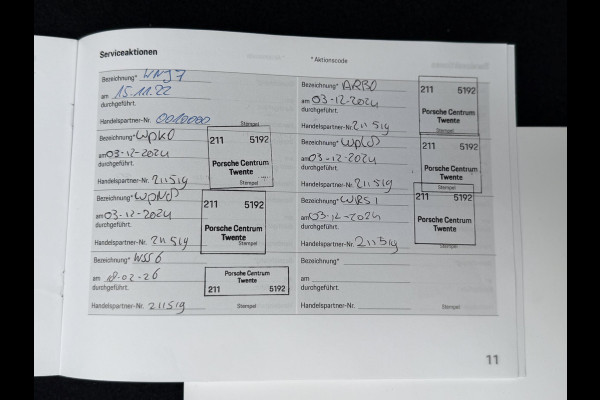 Serviceaktionen
* Aktionscode
Bezeichnung* WNJ7
am 15.11.22
durchgeführt.
Handelspartner-Nr. 0010000
Stempel
Bezeichnung* ARB0
am 03-12-2024
durchgeführt.
Handelspartner-Nr. 2115192
211 5192
Porsche Centrum
Twente
Bezeichnung* WPK0
am 03-12-2024
durchgeführt.
Handelspartner-Nr. 2115192
Stempel
211 5192
Porsche Centrum
Twente
Bezeichnung* WPL0
am 03-12-2024
durchgeführt.
Handelspartner-Nr. 2115192
Stempel
211 5192
Porsche Centrum
Twente
Bezeichnung* WPN0
am 03-12-2024
durchgeführt.
Handelspartner-Nr. 2115192
Stempel
211 5192
Porsche Centrum
Twente
Bezeichnung* WRS1
am 03-12-2024
durchgeführt.
Handelspartner-Nr. 2115192
Stempel
211 5192
Porsche Centrum
Twente
Bezeichnung* WSS6
am 18-02-26
durchgeführt.
Handelspartner-Nr. 2115192
Stempel
Porsche Centrum
Twente
211 5192
Bezeichnung*
am
durchgeführt.
Handelspartner-Nr.
Stempel
11